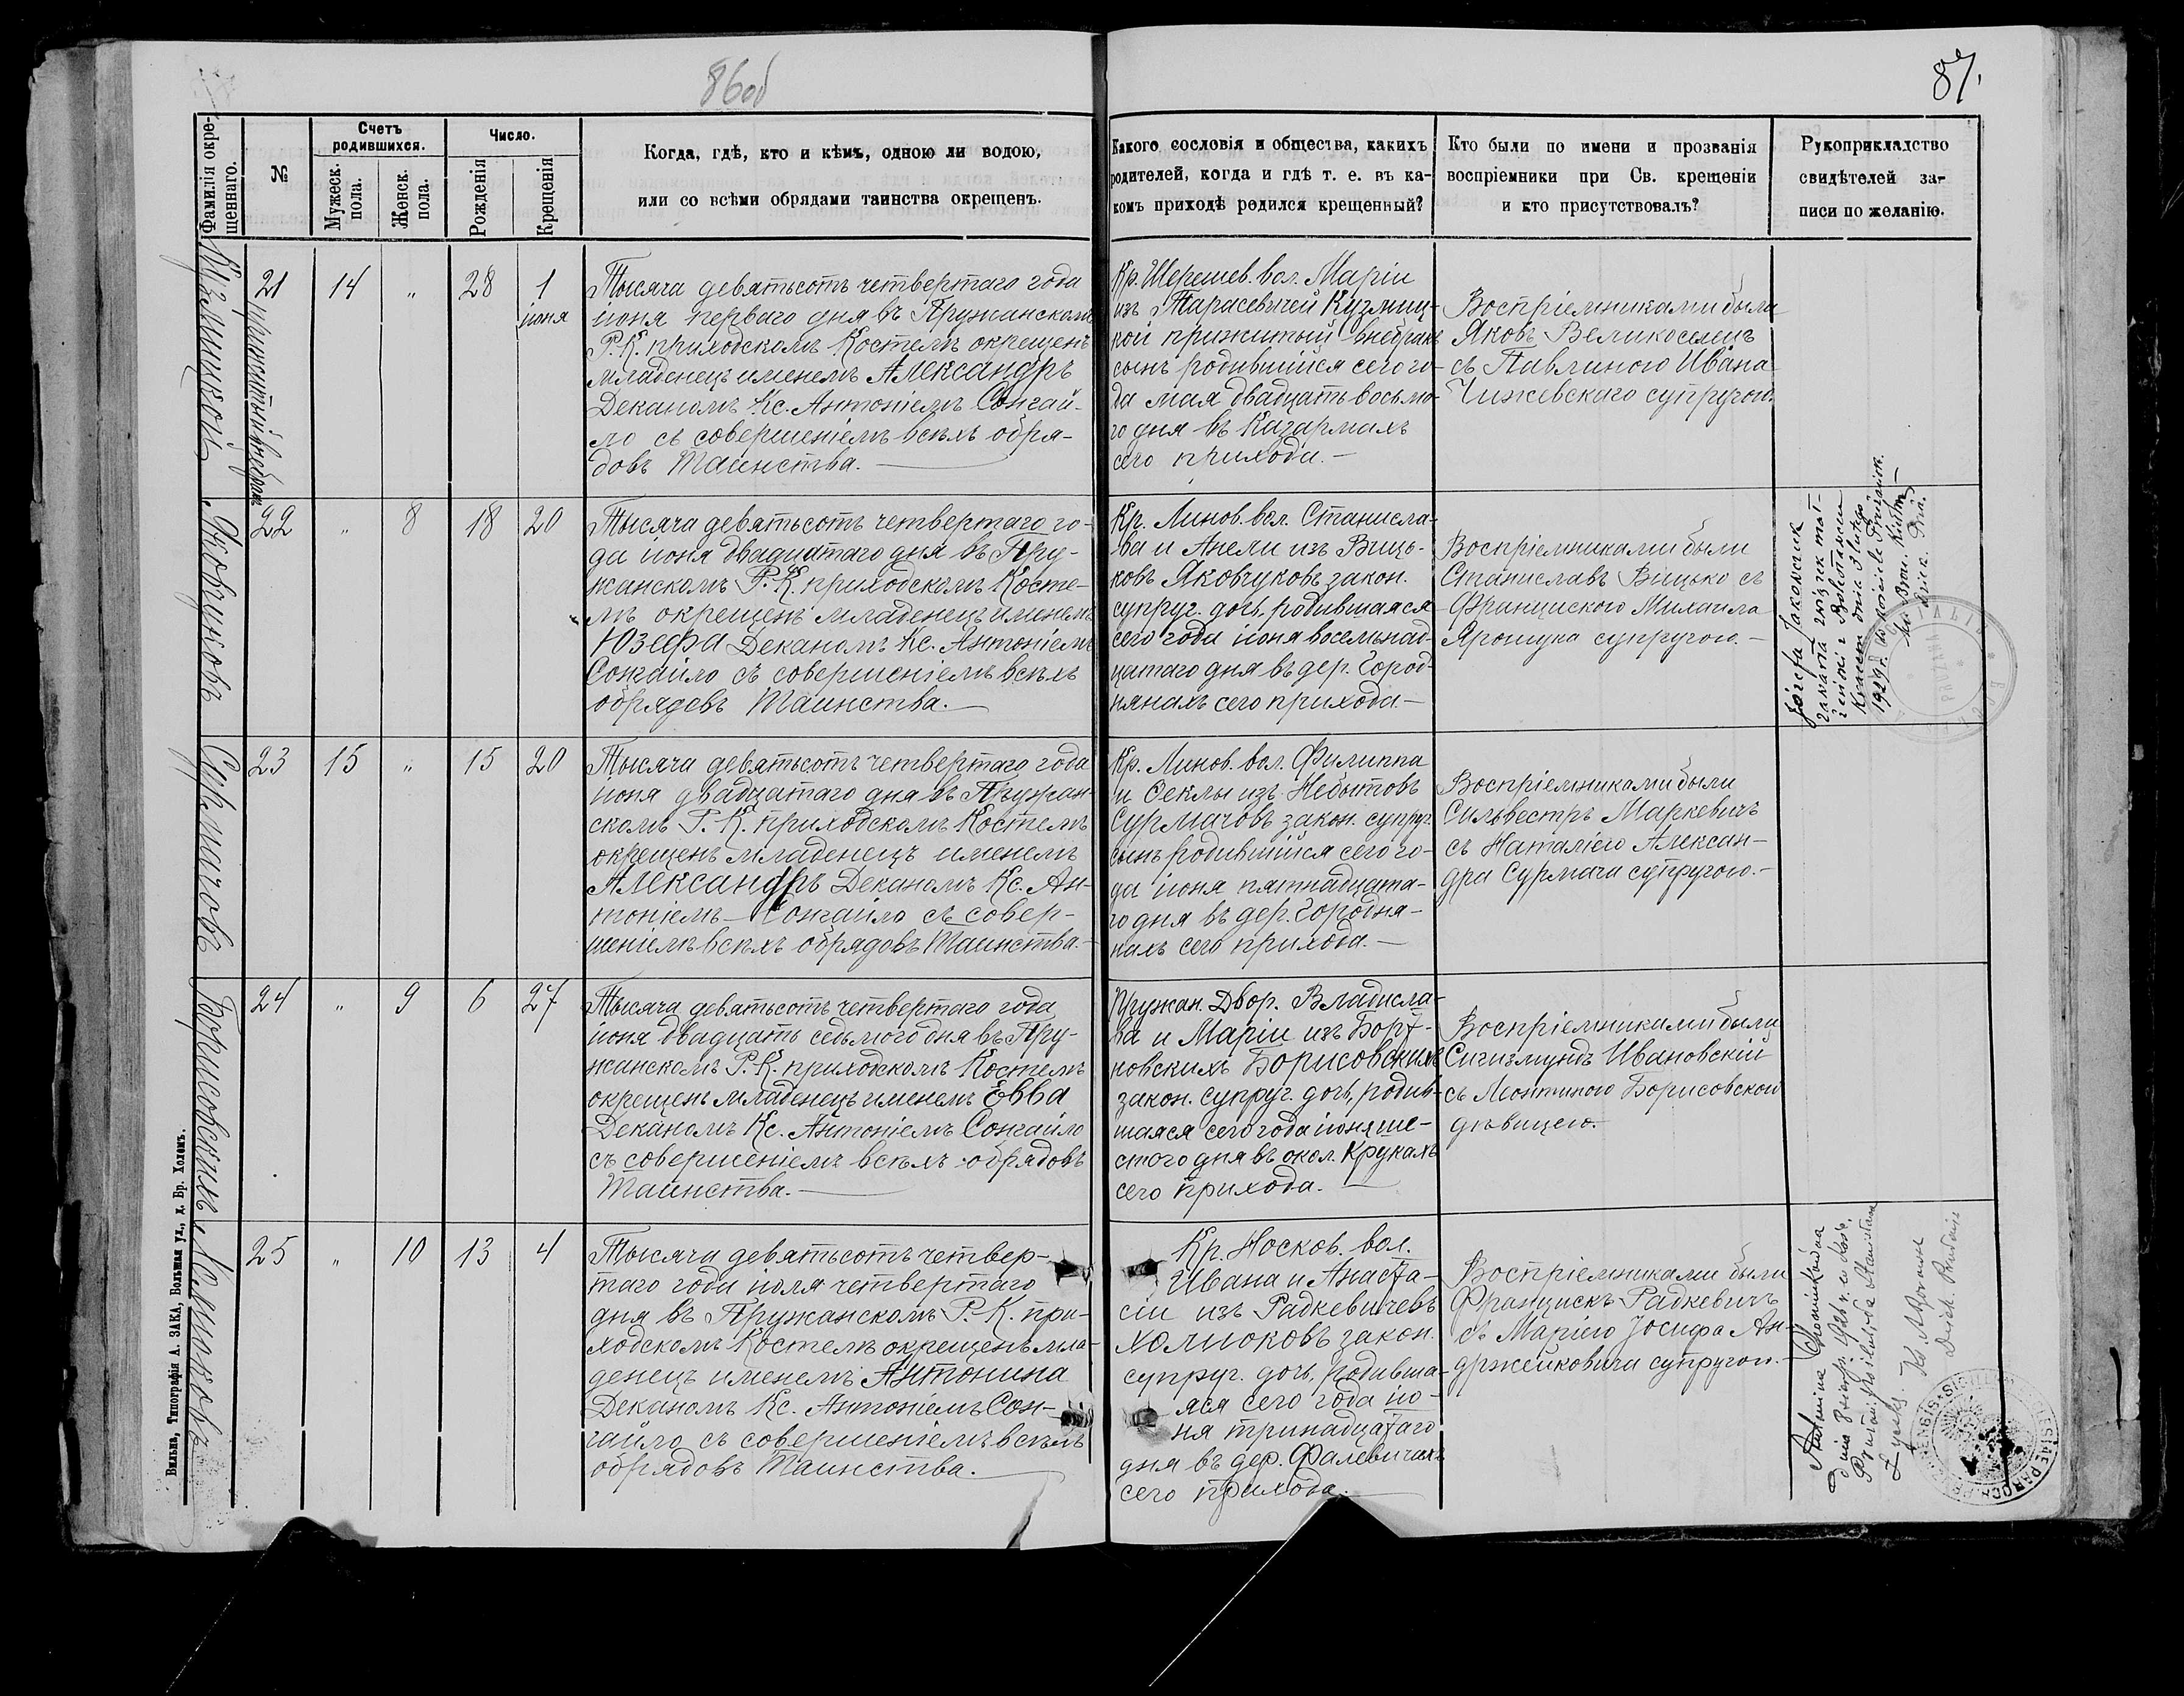 86об
87.
Фамилія окре-
щеннаго.
№
Счетъ
родившихся.
Мужеск.
пола.
Женск.
пола.
Число.
Рожденія
Крещенія
Когда, гдѣ, кто и кѣмъ, одною ли водою,
или со всѣми обрядами таинства окрещенъ.
Какого сословія и общества, какихъ
родителей, когда и гдѣ т. е. въ ка-
комъ приходѣ родился крещенный?
Кто были по имени и прозванія
воспріемники при Св. крещеніи
и кто присутствовалъ?
Рукоприкладство
свидѣтелей за-
писи по желанію.
Кузмицкой
прижитый внебрач.
21
14
"
28
1
іюня
Тысяча девятьсотъ четвертаго года
іюня перваго дня въ Пружанскомъ
Р. К. приходскомъ Костелѣ окрещенъ
младенецъ именемъ Александръ
Деканомъ Кс. Антоніемъ Сонгай-
ло съ совершеніемъ всѣхъ обря-
довъ Таинства.—
Кр. Шерешев. вол. Маріи
изъ Тарасевичей Кузмиц-
кой прижитый внебрачн
сынъ родившійся сего го-
да мая двадцать восьмо-
го дня въ Казармахъ
сего прихода.—
Воспріемниками была
Яковъ Великоселецъ
съ Павлиною Ивана
Чижевскаго супругою
Яковчуковъ
22
"
8
18
20
Тысяча девятьсотъ четвертаго го-
да іюня двадцатаго дня въ Пру-
жанскомъ Р. К. приходскомъ Косте-
лѣ окрещенъ младенецъ именемъ
Юзефа Деканомъ Кс. Антоніемъ
Сонгайло съ совершеніемъ всѣхъ
обрядовъ Таинства.—
Кр. Линов. вол. Станисла-
ва и Анели изъ Вицъ-
ковъ Яковчуковъ закон.
супруг. дочь, родившаяся
сего года іюня восемьнад-
цатаго дня въ дер. Город-
нянахъ сего прихода.—
Воспріемниками были
Станиславъ Вицько съ
Франциского Михаила
Ярошука супругою.—
Józefa Jakowczuk
zawarła związek mał-
żeński z
dnia 3 lutego
1929 r. w kościele Prużańsk.
Сурмачовъ
23
15
"
15
20
Тысяча девятьсотъ четвертаго года
іюня двадцатаго дня въ Пружан-
скомъ Р. К. приходскомъ Костелѣ
окрещенъ младенецъ именемъ
Александръ Деканомъ Кс. Ан-
тоніемъ Сонгайло съ совер-
шеніемъ всѣхъ обрядовъ Таинства.—
Кр. Линов. вол. Филиппа
и Ѳеклы изъ Небытовъ
Сурмачовъ закон. супруг.
сынъ родившійся сего го-
да іюня пятнадцата-
го дня въ дер. Городня-
нахъ сего прихода.—
Воспріемниками были
Сильвестръ Маркевичъ
съ Наталіею Алексан-
дра Сурмача супругою.—
Борисовскихъ
24
"
9
6
27
Тысяча девятьсотъ четвертаго года
іюня двадцать седьмого дня въ Пру-
жанскомъ Р. К. приходскомъ Костелѣ
окрещенъ младенецъ именемъ Евва
Деканомъ Кс. Антоніемъ Сонгайло
съ совершеніемъ всѣхъ обрядовъ
Таинства.—
Пружан. Двор. Владисла-
ва и Маріи изъ Борт-
новскихъ Борисовскихъ
закон. супруг. дочь, родив-
шаяся сего года іюня ше-
стого дня въ окол. Крукахъ
сего прихода.—
Воспріемниками были
Сигизмундъ Ивановскій
съ Леонтиною Борисовской
дѣвицею.—
Холшоковъ
25
"
10
13
4
Тысяча девятьсотъ четвер-
таго года іюля четвертаго
дня въ Пружанскомъ Р. К. при-
ходскомъ Костелѣ окрещенъ мла-
денецъ именемъ Антонина
Деканомъ Кс. Антоніемъ Сон-
гайло съ совершеніемъ всѣхъ
обрядовъ Таинства.—
Кр. Носков. вол.
Ивана и Анаста-
сіи изъ Радкевичевъ
закон.
супруг. дочь, родивша-
яся сего года ію-
ня тринадцатаго
дня въ дер. Фалевичахъ
сего прихода.—
Воспріемниками были
Францискъ Радкевичъ
съ Маріею Іосифа Ан-
држейковича супругою.—
Antonina
Вильна, Типографія А. ЗАКА, Большая ул., д. Бр. Холемъ.